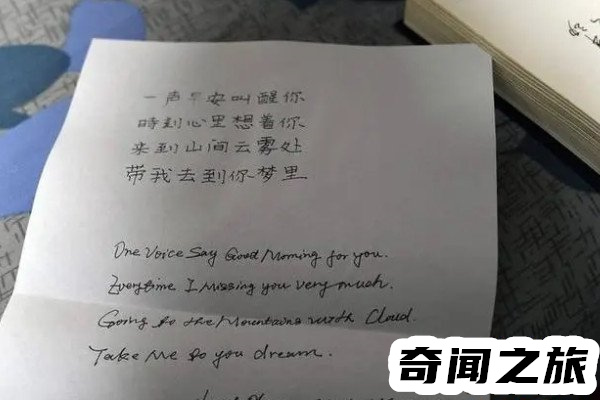 一声早安叫醒你
時刻心里想着你
来到山间云雾处
带我去到你梦里
One Voice Say Good Morning for you.
Everytime I Missing you very much.
Going to the Mountains with Cloud.
Take Me to you dream.
奇闻之旅